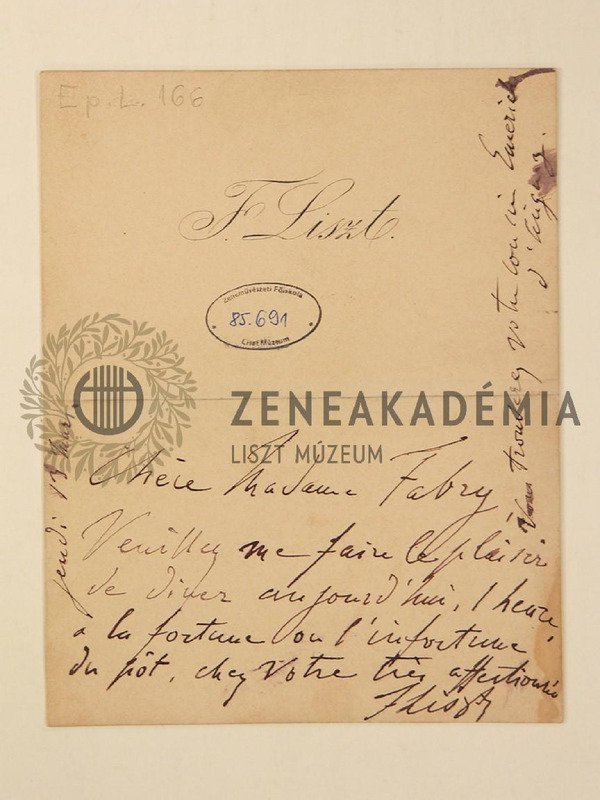 Ep. L. 166
F. Liszt.
Zeneművészeti Főiskola
85.691
Liszt Múzeum
ZENEAKADÉMIA
LISZT MÚZEUM
Chère Madame Fabry
Veuillez me faire le plaisir
de diner aujourd'hui, 1 heure,
à la fortune ou l'infortune
du pôt, chez votre très affectionné
FLiszt
jeudi 13
Vous trouverez votre cousin Emerich